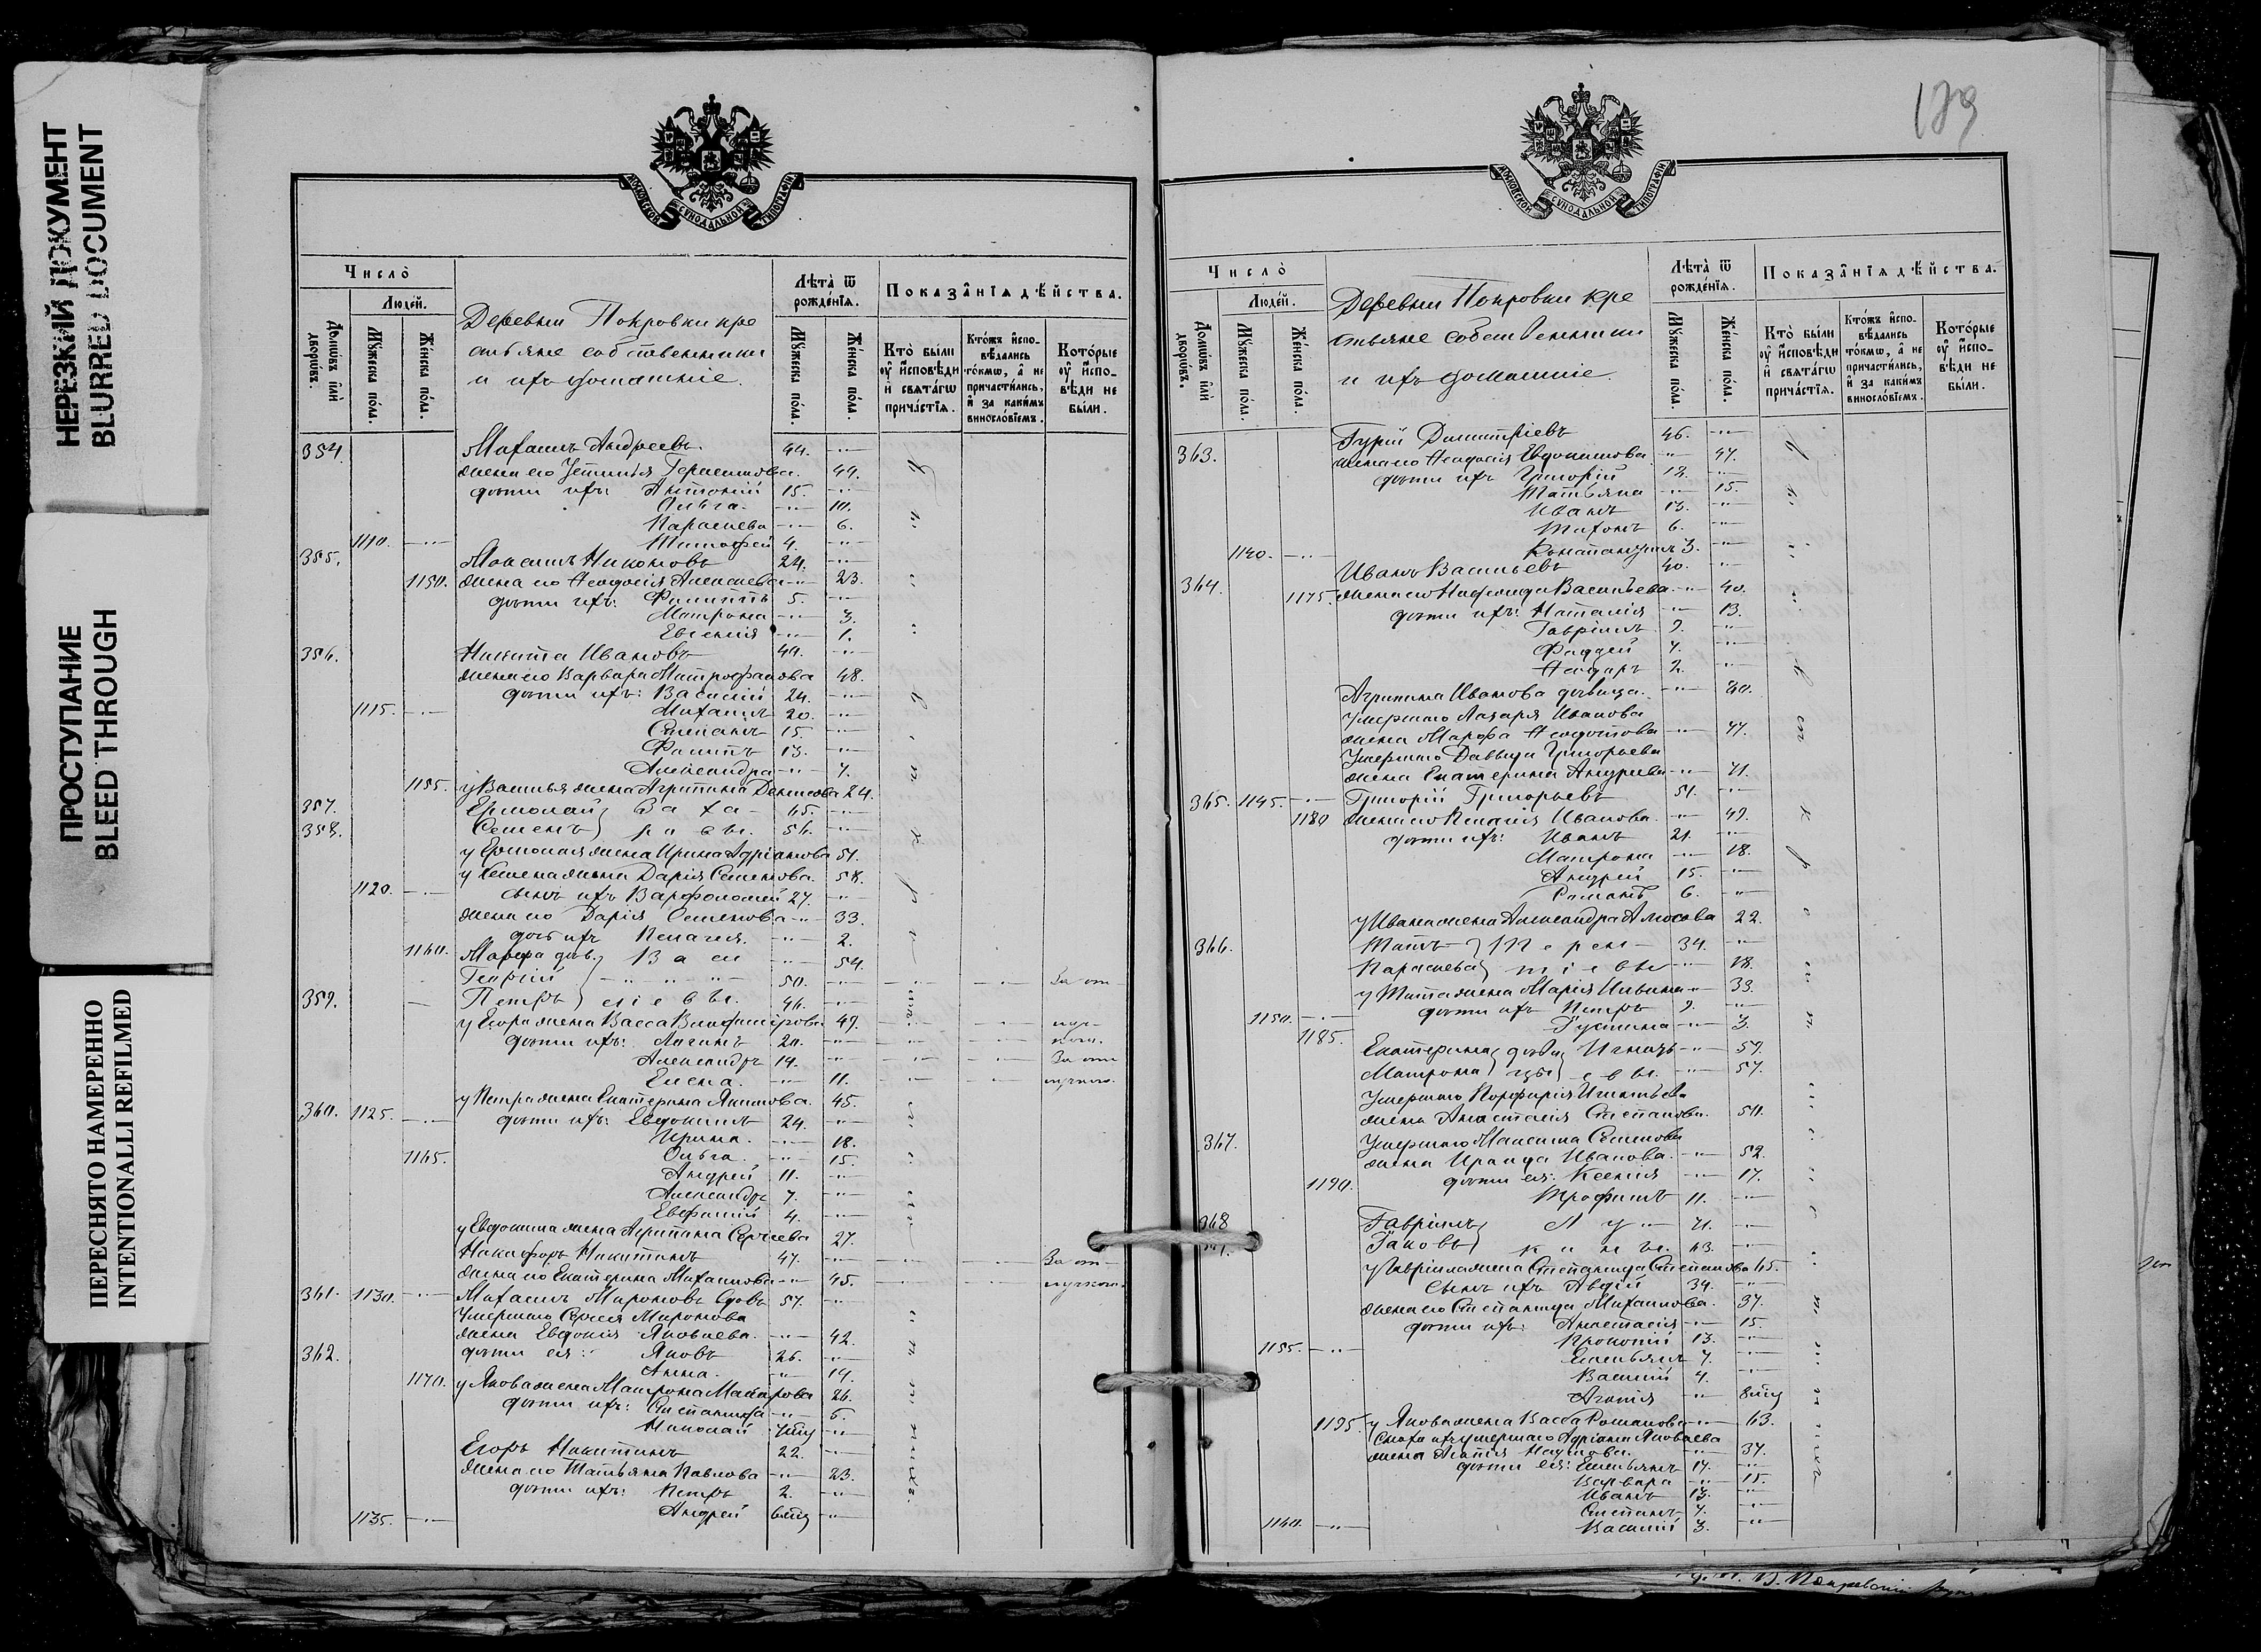 НЕРЕЗКИЙ ДОКУМЕНТ
BLURRED DOCUMENT
ПРОСТУПАНИЕ
BLEED THROUGH
ПЕРЕСНЯТО НАМЕРЕННО
INTENTIONALLI REFILMED
МОСКОВСКОЙ СѴНОДАЛЬНОЙ ТИПОГРАФІИ
Число̀
Людей.
Домѡвъ и҆лѝ дворѡвъ.
Мꙋжеска по́ла.
Же́нска по́ла.
Деревни Покровки кре
стьяне собственники
и ихъ домашніе.
Лѣта̀ ѿ рожде́нїѧ.
Мꙋжеска по́ла.
Же́нска по́ла.
Показа̑нїѧ дѣ́йства.
Кто̀ бы́ли оу҆ и҆сповѣди и҆ свѧта́гѡ прича́стїѧ.
Кто́жъ и҆спо-вѣдались то́кмѡ, а҆ не причасти́лись, и҆ за каки́мъ винослові́емъ.
Кото́рые оу҆ и҆спо-вѣди не бы́ли.
354. Михаилъ Андреевъ 44. -"-
жена его Устинья Герасимова. 44.
дѣти ихъ: Антоній 15. -"-
Ольга. -"- 10.
Параскева -"- 6.
1110. -"- Тимофей 4. -"-
355. Максимъ Никоновъ 24. -"-
1150. жена его Ѳеодосія Алексѣева -"- 23.
дѣти ихъ: Филиппъ 5. -"-
Матрона -"- 3.
Евгенія -"- 1.
356. Никита Ивановъ 49. -"-
жена его Варвара Митрофанова 48.
дѣти ихъ: Василій 24. -"-
1115. -"- Михаилъ 20. -"-
Степанъ 15. -"-
Филиппъ 13. -"-
Александра -"- 7.
1155. у Василья жена Агрипина Денисова 24.
357. Ермолай } Заха- 65. -"-
358. Семенъ } ровы. 56. -"-
у Ермолая жена Ирина Адріанова 51.
у Семена жена Дарія Семенова. 58.
1120. -"- сынъ ихъ Варфоломей 27. -"-
жена его Дарія Семенова -"- 33.
дочь ихъ Пелагея. -"- 2.
1160. Марфа дѣв. } Васи -"- 54.
Георгій } -"- 50. -"- -"- -"- За от-
359. Петръ } ліевы. 46. -"-
у Егора жена Васса Владимірова 49. -"- -"- луч-
дѣти ихъ: Логинъ 20. -"- -"- -"- кою.
Александръ 14. -"- -"- -"- За от
Елена. -"- 11. -"- -"- лучкою.
у Петра жена Екатерина Акимова. 45.
360. 1125. -"- дѣти ихъ: Евдокимъ 24. -"-
Ирина. -"- 18.
1165. Ольга. -"- 15.
Андрей 11. -"-
Александръ 7. -"-
Евфимій 4. -"-
у Евдокима жена Агрипина Сергѣева 27.
Никифоръ Никитинъ 47. -"- -"- -"- За от-
жена его Екатерина Михаилова -"- 45. -"- -"- лучкою.
361. 1130. -"- Михаилъ Мироновъ вдовъ 57. -"-
Умершаго Сергея Миронова
жена Евдокія Яковлева. -"- 42.
362. дѣти ея: Яковъ 26. -"-
Анна. -"- 14.
1170. у Якова жена Матрона Макарова 26.
дѣти ихъ: Степанида -"- 5.
Николай -"-
Егоръ Никитинъ 22. -"-
жена его Татьяна Павлова -"- 23.
дѣти ихъ: Петръ 2. -"-
1135. -"- Андрей -"-
МОСКОВСКОЙ СѴНОДАЛЬНОЙ ТИПОГРАФІИ
Число̀
Людей.
Домѡвъ и҆лѝ дворѡвъ.
Мꙋжеска по́ла.
Же́нска по́ла.
Деревни Покровки кре
стьяне собственники
и ихъ домашніе.
Лѣта̀ ѿ рожде́нїѧ.
Мꙋжеска по́ла.
Же́нска по́ла.
Показа̑нїѧ дѣ́йства.
Кто̀ бы́ли оу҆ и҆сповѣди и҆ свѧта́гѡ прича́стїѧ.
Кто́жъ и҆спо-вѣдались то́кмѡ, а҆ не причасти́лись, и҆ за каки́мъ винослові́емъ.
Кото́рые оу҆ и҆спо-вѣди не бы́ли.
363. Гурій Димитріевъ 46. -"-
жена его Ѳеодосія Евдокимова -"- 47.
дѣти ихъ Григорій 18. -"-
Татьяна -"- 15.
Иванъ 13. -"-
Тихонъ 6. -"-
1140. -"- Константинъ 3. -"-
364. Иванъ Васильевъ 40. -"-
1175. жена его Васильева -"- 40.
дѣти ихъ: Наталія -"- 13.
Гавріилъ 9. -"-
Фаддей 4. -"-
Ѳеодоръ 2. -"-
Агрипина Иванова дѣвица. -"- 40.
Умершаго Лазаря Иванова
жена Марфа Ѳеодотова -"- 47.
Умершаго Давыда Григорьева
жена Екатерина Андреева -"- 71.
365. 1145. -"- Григорій Григорьевъ 51. -"-
1180 жена его Пелагія Иванова. -"- 49.
дѣти ихъ: Иванъ 21. -"-
Матрона -"- 18.
Андрей 15. -"-
Романъ 6. -"-
у Ивана жена Александра Амосова 22.
366. Титъ } Терен- 34. -"-
Параскева } тіевы -"- 18.
у Тита жена Марія Ильина -"- 33.
1150. -"- дѣти ихъ Петръ 9. -"-
1185. Густина -"- 3.
Екатерина } дѣви } Игнать -"- 59.
Матрона } цы } евы. -"- 57.
Умершаго Порфирія Игнатьева
жена Анастасія Степанова. 50.
367. Умершаго Максима Семенова
жена Ираида Иванова. -"- 52.
1190. дѣти ея: Ксенія -"- 17.
Трофимъ 11. -"-
368 Гавріилъ } Лу- 71. -"-
Іаковъ } кины. 63. -"-
у Гавріила жена Степанида Степанова 65.
сынъ ихъ Авдій 34. -"-
жена его Степанида Михаилова. 37.
дѣти ихъ: Анастасія -"- 15.
1155. -"- Прокопій 13. -"-
Емельянъ 7. -"-
Василій 4. -"-
Агапія -"-
1195. у Якова жена Васса Романова -"- 63.
Сноха ихъ умершаго Адріана Яковлева
жена Агапія Наумова. -"- 37.
дѣти ея: Емельянъ 17. -"-
Варвара -"- 15.
Иванъ 13. -"-
Степанъ 7. -"-
1160. -"- Василій 3. -"-